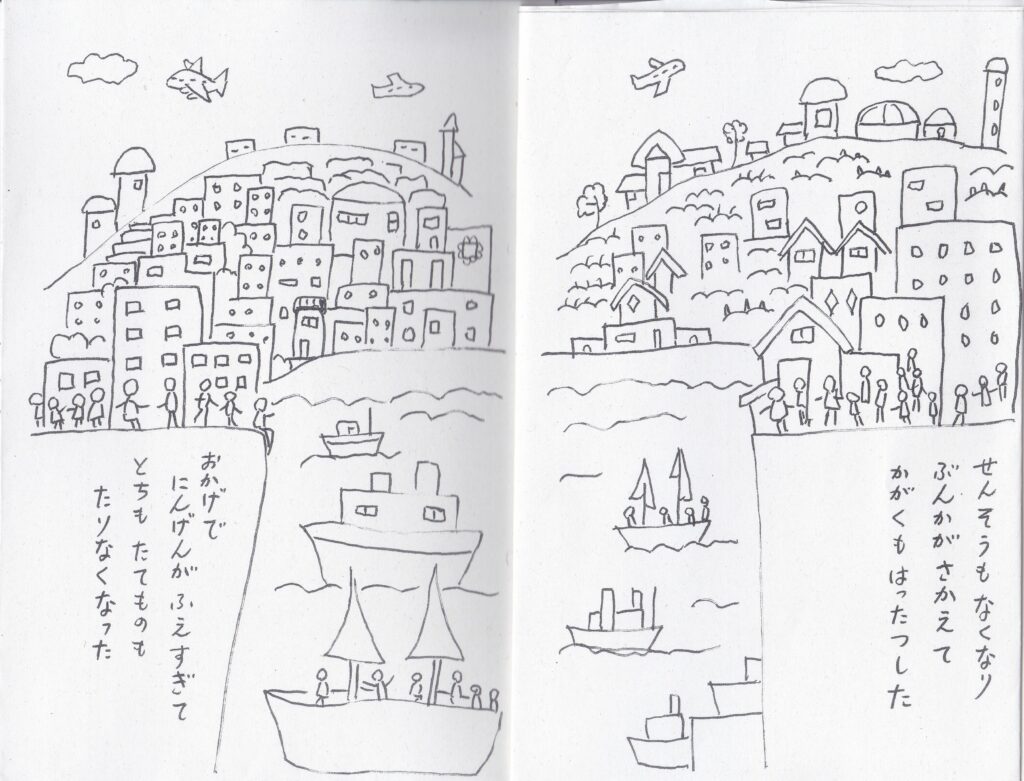 せんそうもなくなり
ぶんかがさかえて
かがくもはったつした
おかげで
にんげんが ふえすぎて
とちも たてものも
たりなくなった